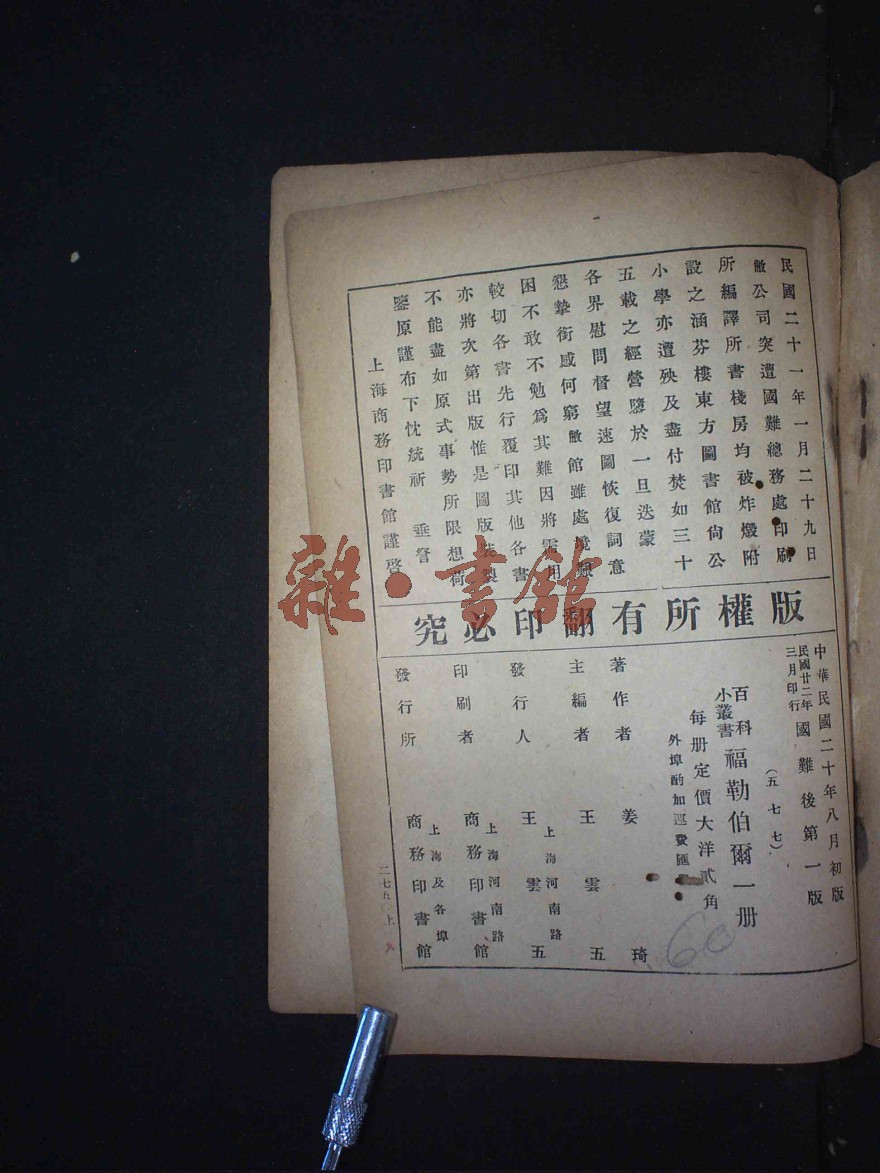 民國二十一年一月二十九日
敝公司突遭國難總務處印刷
所編譯所書棧房均被炸燬附
設之涵芬樓東方圖書館尙公
小學亦遭殃及盡付焚如三十
五載之經營隳於一旦迭蒙
各界慰問督望速圖恢復詞意
懇摯銜感何窮敝館雖處境艱
困不敢不勉爲其難因將需用
較切各書先行覆印其他各書
亦將次第出版惟是圖版裝製
不能盡如原式事勢所限想荷
鑒原謹布下忱統祈 垂詧
上海商務印書館謹啓
版權所有翻印必究
中華民國二十年八月初版
民國廿二年三月印行國難後第一版
(五七七)
百科小叢書福勒伯爾一册
每册定價大洋貳角
外埠酌加運費匯
著作者 姜琦
主編者 王雲五
發行人 王雲五
上海河南路
印刷者 商務印書館
上海河南路
發行所 商務印書館
上海及各埠
二七五〇上
60
雜·書館